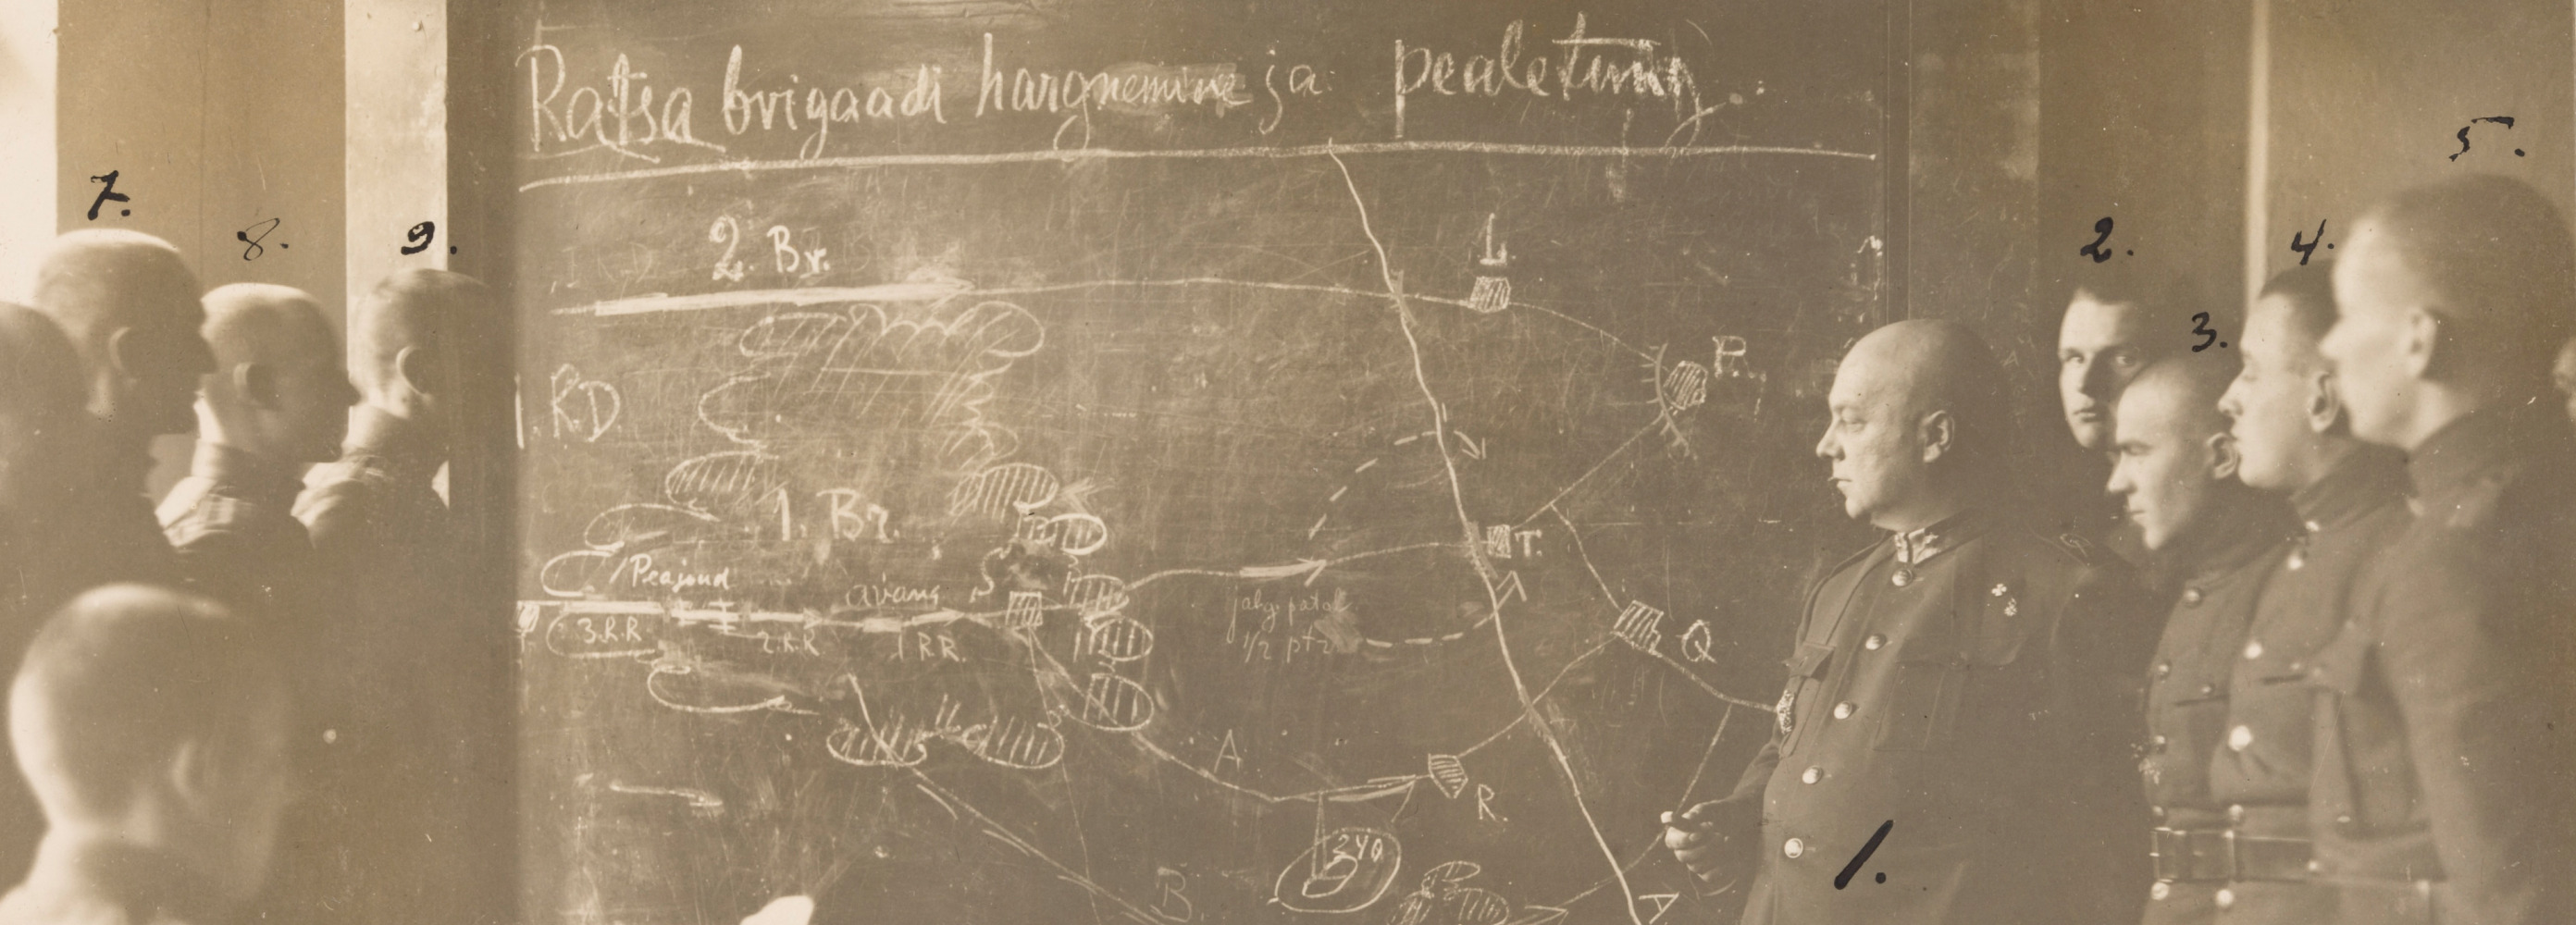 Ratsa brigaadi hargnemine ja pealetung.
5.
7.
8.
9.
2.
4.
3.
2. Br.
L.
P.
1. R.D.
1. Br.
T.
Peajõud
avang.
jalg. patal.
1/2 ptr.
3.R.R.
2.R.R
1 R.R.
Q
A
R.
240
1.
B.
A